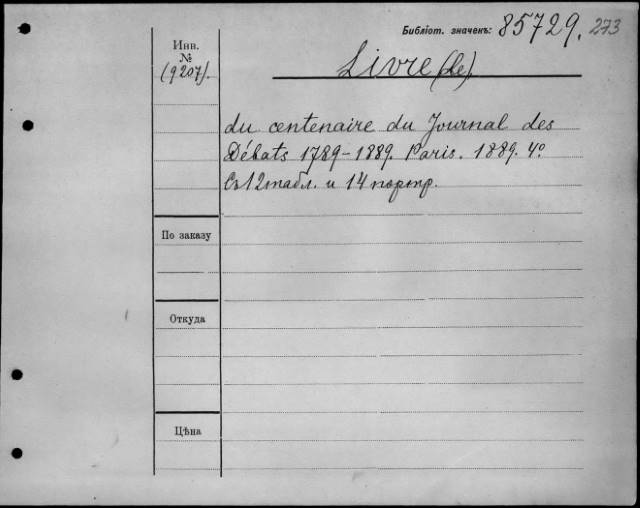 Библіот. значекъ: 85729. 273
Инв.
№
(9207).
Livre (le)
du centenaire du Journal des
Débats 1789-1889. Paris. 1889. 4º
Съ 12 табл. и 14 портр.
По заказу
Откуда
Цѣна